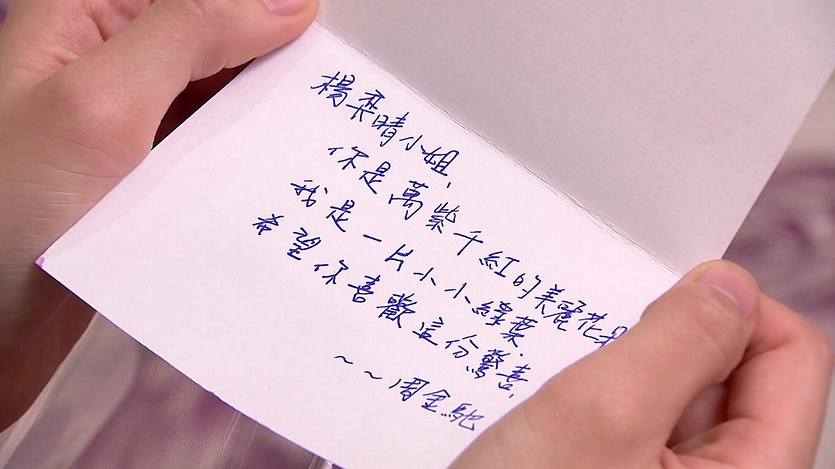 楊雲晴小姐,
你是萬紫千紅的美麗花
我是一片小小綠葉.
希望你喜歡這份驚喜,
~~周金馳